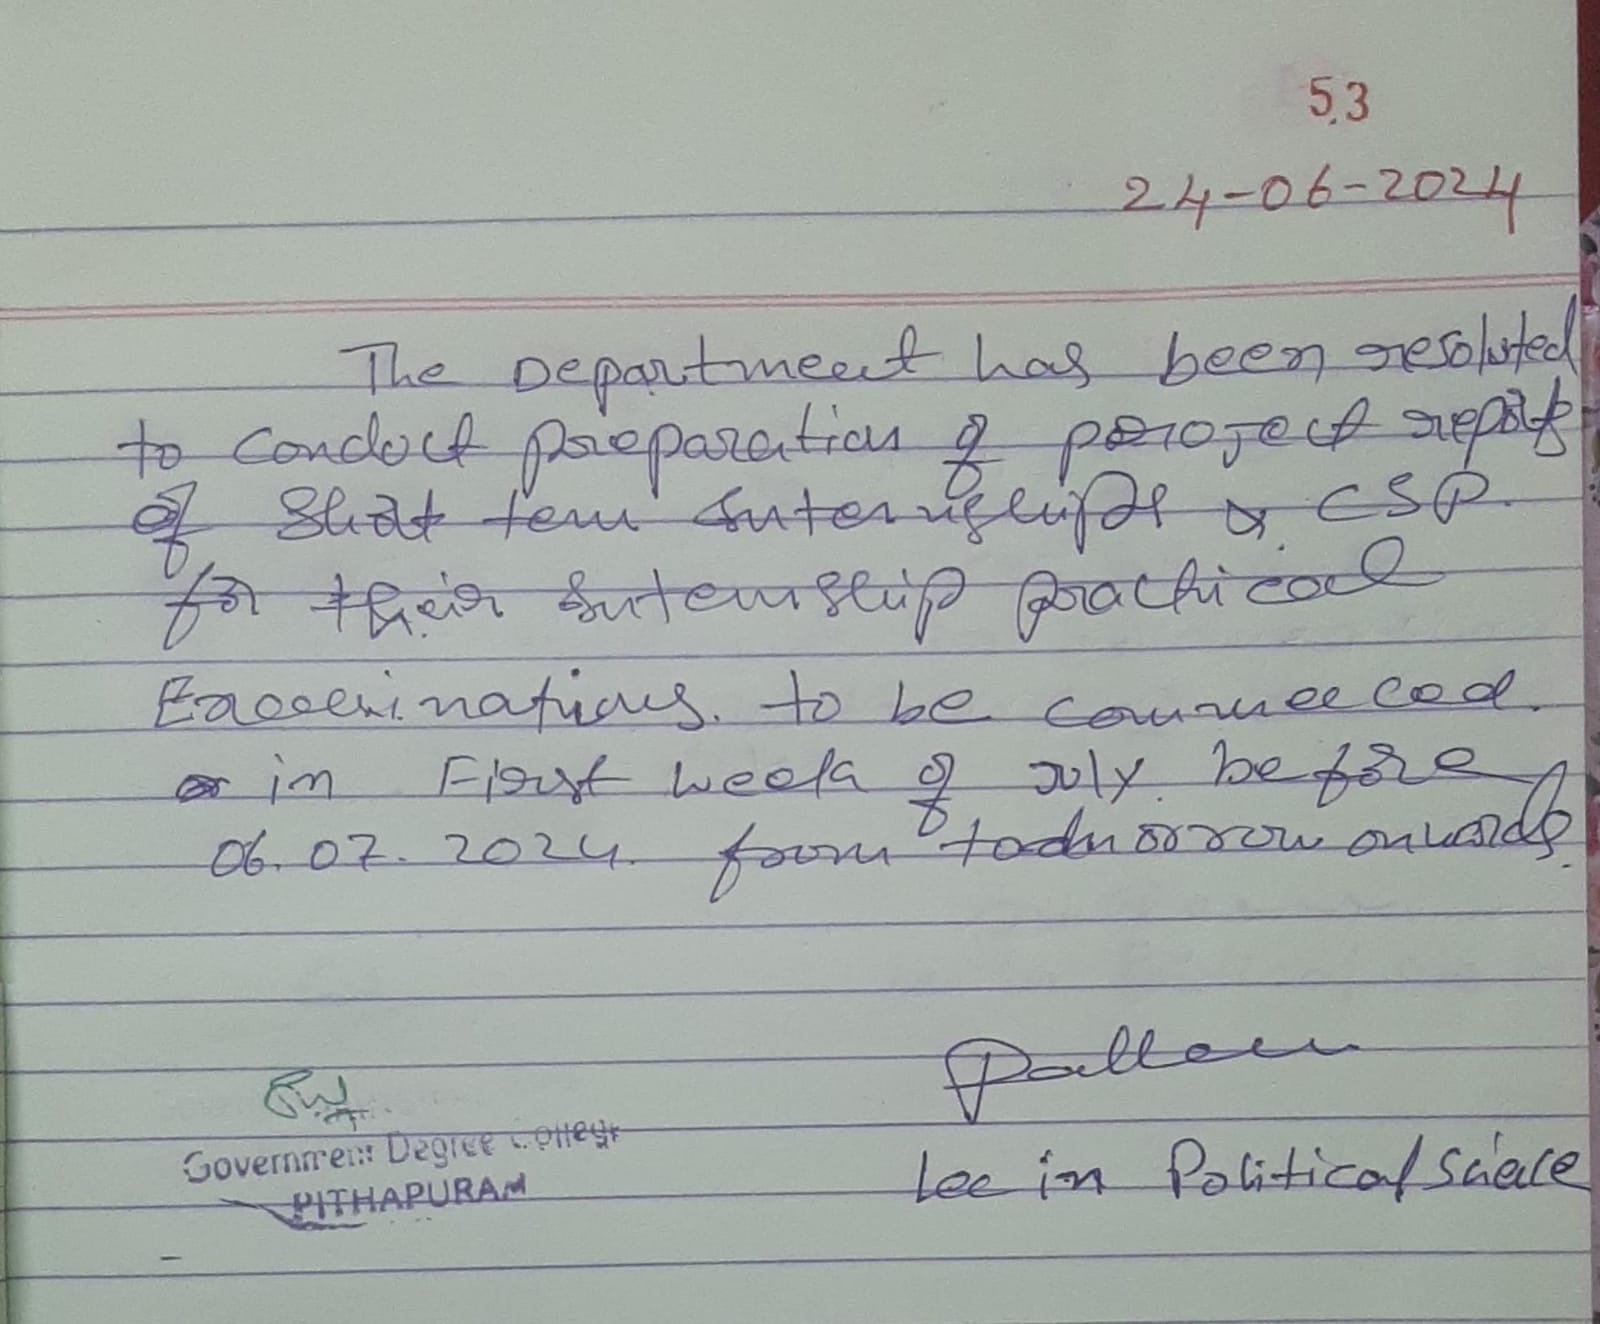 53
24-06-2024
The Department has been resoluted
to conduct preparation of project report
of Short term Internships & CSP.
for their Internship practical
Examinations. to be commeeced.
in First week of July. before
06.07.2024. from tomorrow onwards.
Government Degree College
PITHAPURAM
Lec in Political Science